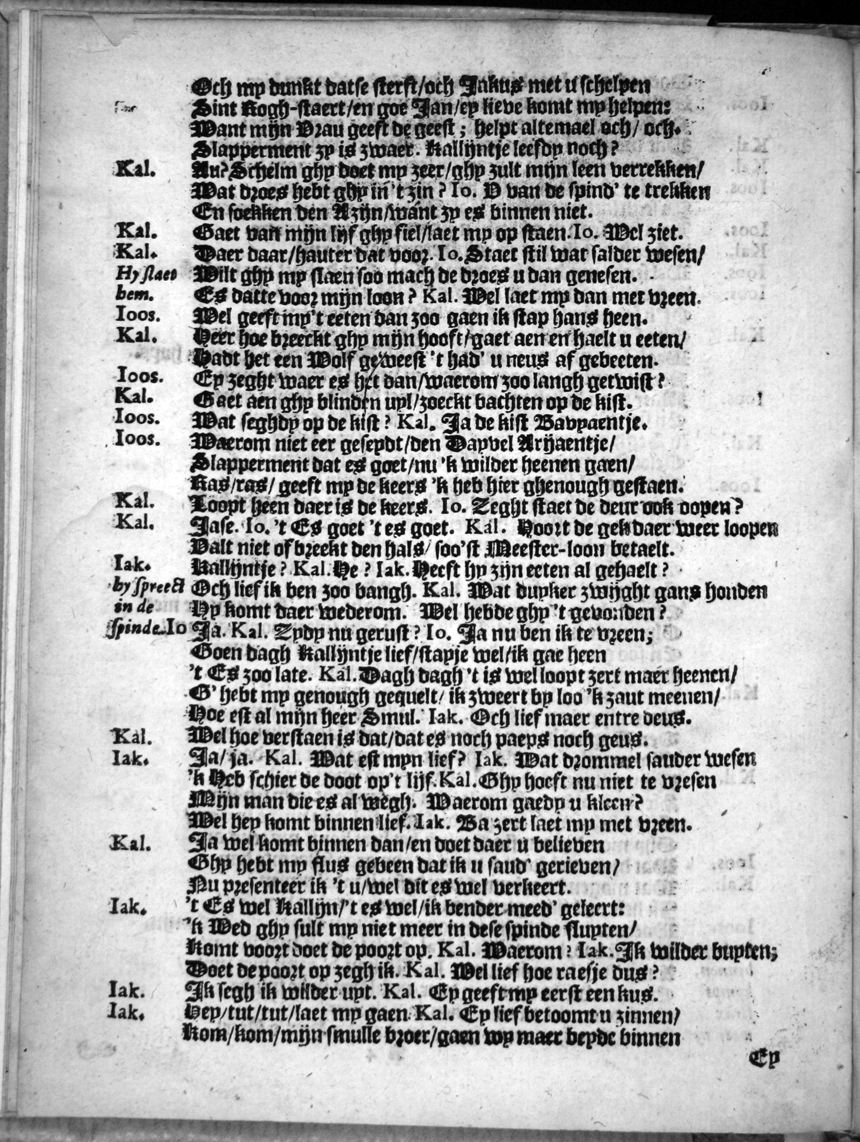 Och my dunkt datse sterft/och Jakus met u schelpen
Sint Kogh-staert/en goe Jan/ey lieve komt my helpen:
Want mijn Vrau geeft de geest; helpt altemael och/ och.
Slapperment zy is zwaer. Kallijntje leefdy noch?
Kal. Au? Schelm ghy doet my zeer/ghy zult mijn leen verrekken/
Wat droes hebt ghy in 't zin? Io. V van de spind' te trekken
En soekken den Azijn/want zy es binnen niet.
Kal. Gaet van mijn lijf ghy fiel/laet my op staen. Io. Wel ziet.
Kal. Daer daar/hauter dat voor. Io. Staet stil wat salder wesen/
Hy slaet Wilt ghy my slaen soo mach de droes u dan genesen.
hem. Es datte voor mijn loon? Kal. Wel laet my dan met vreen.
Ioos. Wel geeft my't eeten dan zoo gaen ik stap hans heen.
Kal. Heer hoe breeckt ghy mijn hooft/gaet aen en haelt u eeten/
Hadt het een Wolf geweest 't had' u neus af gebeeten.
Ioos. Ey zeght waer es het dan/waerom zoo langh getwist?
Kal. Gaet aen ghy blinden uyl/zoeckt bachten op de kist.
Ioos. Wat seghdy op de kist? Kal. Ja de kist Bavyaentje.
Ioos. Waerom niet eer geseydt/den Dayvel Arjaentje/
Slapperment dat es goet/nu 'k wilder heenen gaen/
Ras/ras/ geeft my de keers 'k heb hier ghenough gestaen.
Kal. Loopt heen daer is de keers. Io. Zeght staet de deur ook oopen?
Kal. Jase. Io. 't Es goet 't es goet. Kal. Hoort de gek daer weer loopen
Valt niet of breekt den hals/ soo'st Meester-loon betaelt.
Iak. Kallijntje? Kal. He? Iak. Heeft hy zijn eeten al gehaelt?
hy spreect Och lief ik ben zoo bangh. Kal. Wat duyker zwijght gans honden
in de Hy komt daer wederom. Wel hebde ghy 't gevonden?
spinde. Io Ja. Kal. Zydy nu gerust? Io. Ja nu ben ik te vreen;
Goen dagh Kallijntje lief/stapje wel/ik gae heen
't Es zoo late. Kal. Dagh dagh 't is wel loopt zert maer heenen/
G' hebt my genough gequelt/ ik zweert by loo 'k zaut meenen/
Hoe est al mijn heer Smul. Iak. Och lief maer entre deus.
Kal. Wel hoe verstaen is dat/dat es noch paeps noch geus.
Iak. Ja/ ja. Kal. Wat est myn lief? Iak. Wat drommel sauder wesen
'k Heb schier de doot op't lijf. Kal. Ghy hoeft nu niet te vresen
Mijn man die es al wegh. Waerom gaedy u kleen?
Wel hey komt binnen lief. Iak. Ba zert laet my met vreen.
Kal. Ja wel komt binnen dan/en doet daer u believen
Ghy hebt my flus gebeen dat ik u saud' gerieven/
Nu presenteer ik 't u/wel dit es wel verkeert.
Iak. 't Es wel Kallijn/'t es wel/ik bender meed' geleert:
'k Wed ghy sult my niet meer in dese spinde sluyten/
Komt voort doet de poort op. Kal. Waerom? Iak. Ik wilder buyten;
Doet de poort op zegh ik. Kal. Wel lief hoe raesje dus?
Iak. Ik segh ik wilder uyt. Kal. Ey geeft my eerst een kus.
Iak. Hey/tut/tut/laet my gaen. Kal. Ey lief betoomt u zinnen/
Kom/kom/mijn smulle broer/gaen wy maer beyde binnen
Ey